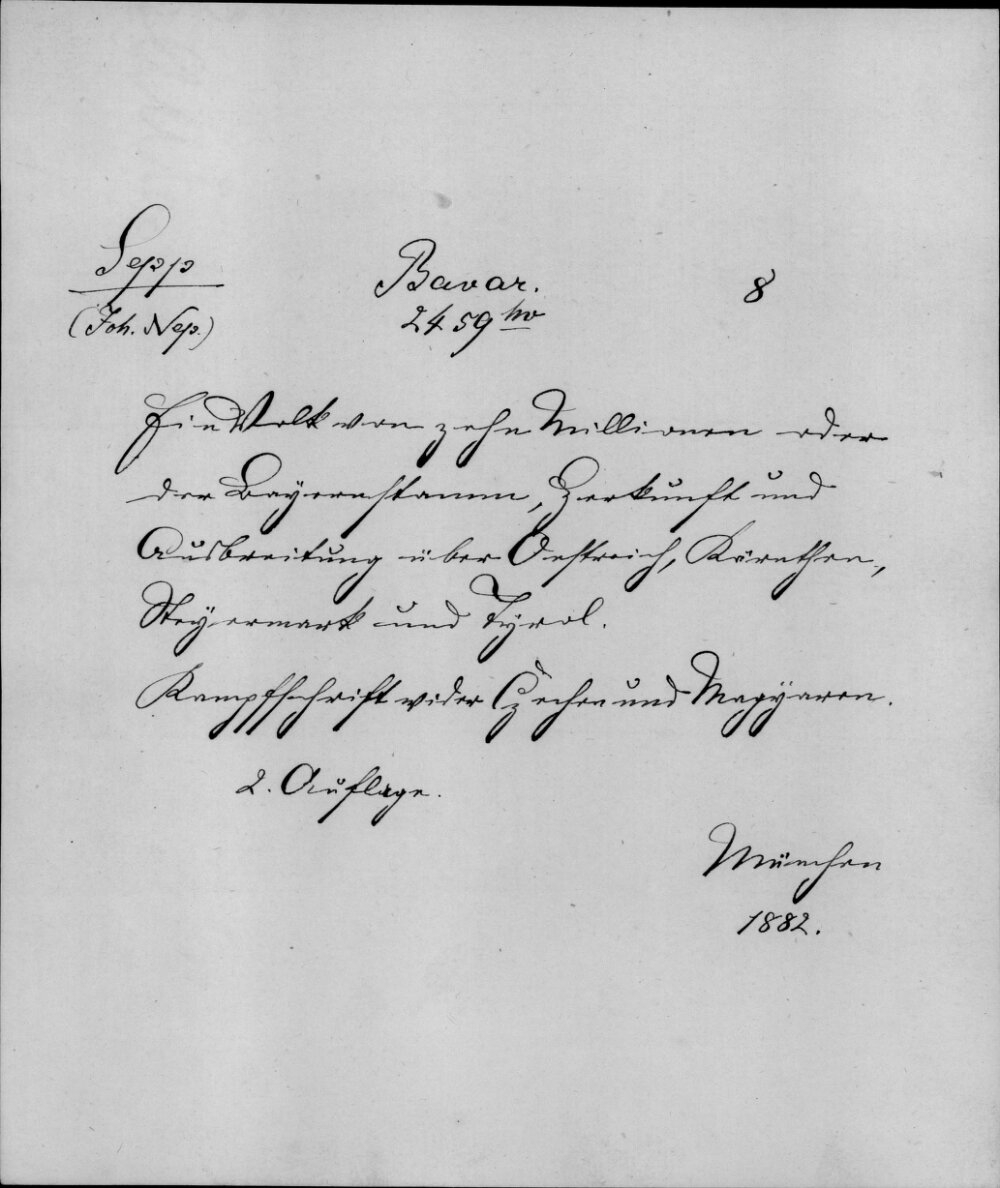 Sepp
(Joh. Nep.)
Bavar.
2459 ho
8
Ein Volk von zehn Millionen oder
der Bayernstamm, Herkunft und
Ausbreitung über Oestreich, Kärnthen,
Steyermark und Tyrol.
Kampfschrift wider Czechen und Magyaren.
2. Auflage.
München
1882.